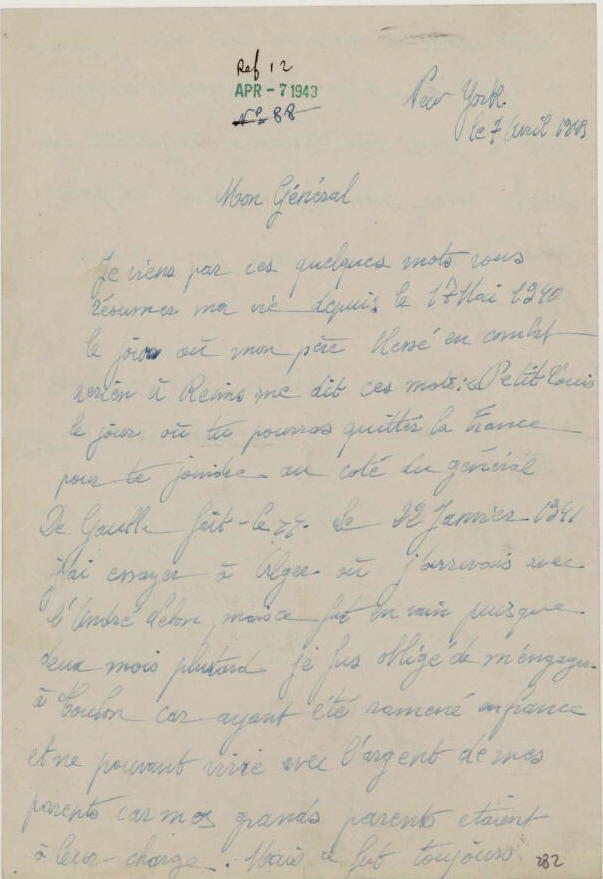 Ref 12
APR - 7 1943
Nº 88
New York.
le 7 Avril 1943
Mon Général
Je viens par ces quelques mots vous
résumer ma vie depuis le 17 Mai 1940
le jour où mon père blessé en combat
aerien à Reims me dit ces mots: "Petit Louis
le jour où tu pourras quitter la France
pour te joindre au coté du général
De Gaulle fait-le". Le 22 Janvier 1941
j'ai essayer à Alger où j'arrivais avec
l'André Lebon, mais ce fut en vain puisque
deux mois plustard je fus obligé de m'engager
à Toulon car ayant été ramené en france
et ne pouvant vivre avec l'argent de mes
parents car mes grands parents etaient
à leur charge. Mais ce fut toujours
282